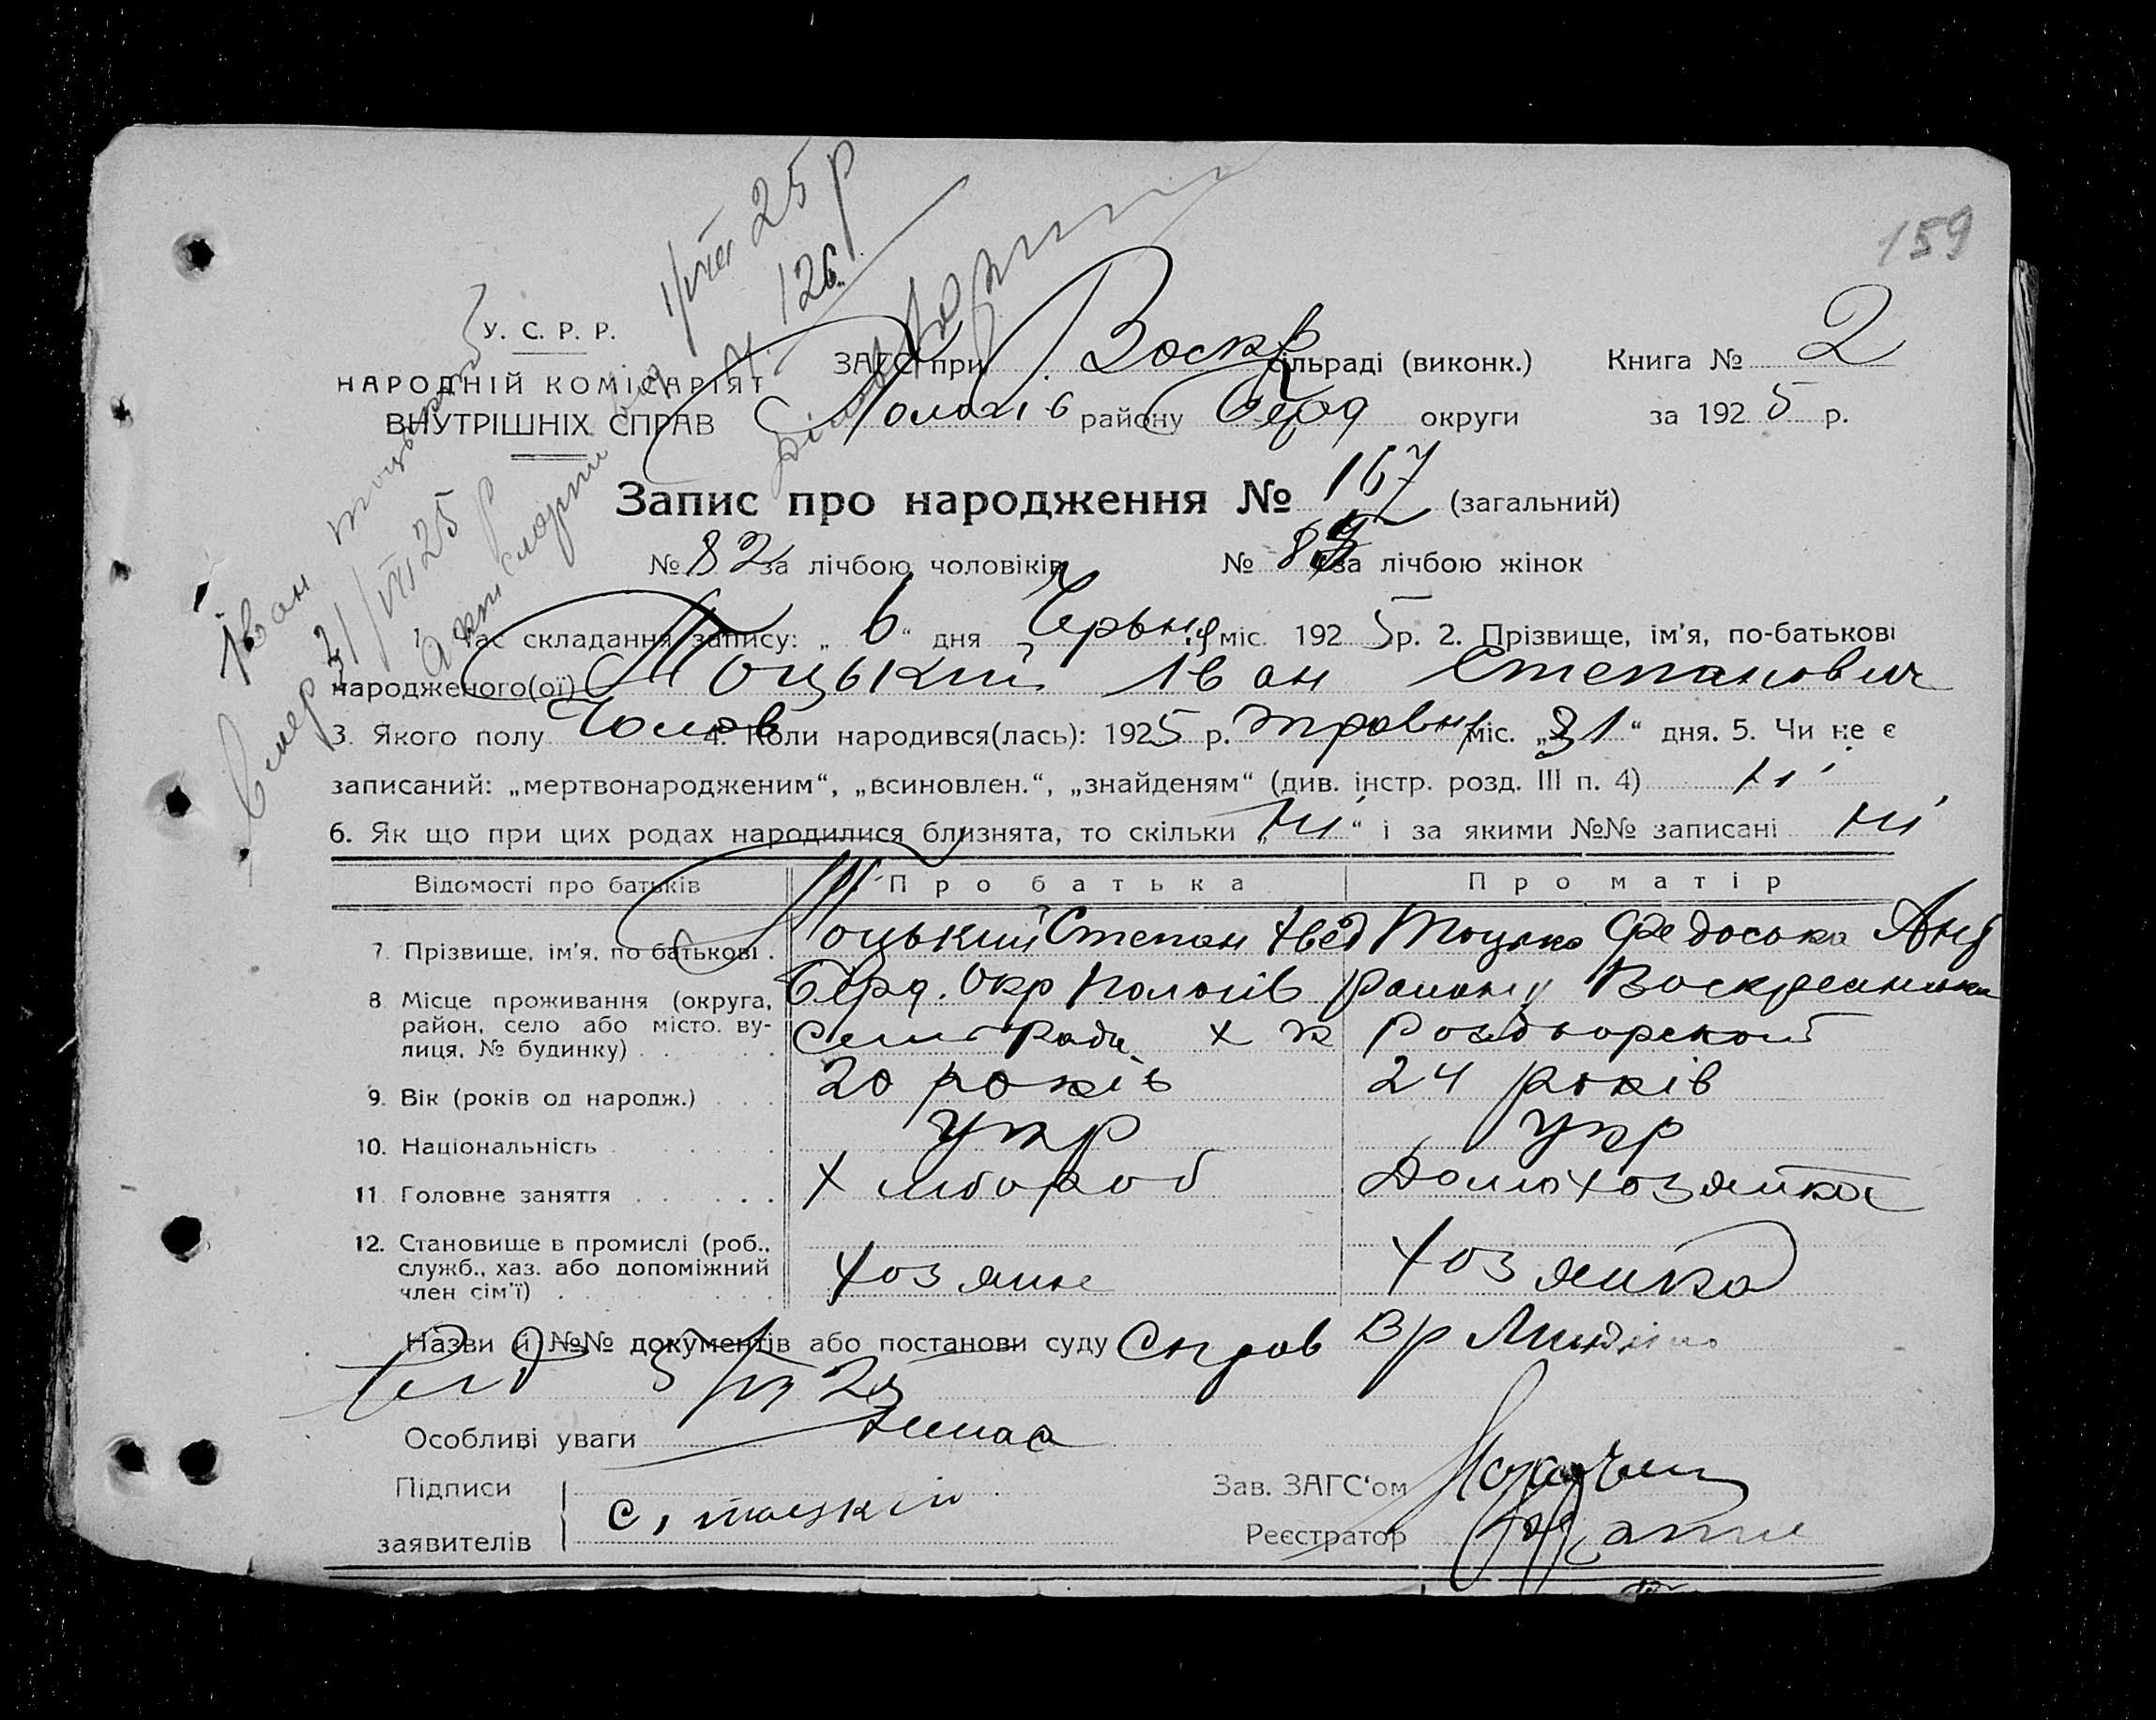 159
Іван Тоцький
Вмер 31/VII 25 р
Акт смерти від 1/VIII 25 р
№ 126
У. С. Р. Р.
НАРОДНІЙ КОМІСАРІЯТ
ВНУТРІШНІХ СПРАВ
ЗАГС при Воскр сільраді (виконк.) Книга № 2
Пологів району Берд округи за 1925 р.
Запис про народження № 167 (загальний)
№ 82 за лічбою чоловіків № 85 за лічбою жінок
1. Час складання запису: „ 6 “ дня Червня міс. 1925 р. 2. Прізвище, ім'я, по-батькові
народженого(ої) Тоцький Іван Степанович
3. Якого полу Чолов 4. Коли народився(лась): 1925 р. травня міс. „31“ дня. 5. Чи не є
записаний: „мертвонародженим“, „всиновлен.“, „знайденям“ (див. інстр. розд. III п. 4) ні
6. Як що при цих родах народилися близнята, то скільки „ні“ і за якими №№ записані ні
Відомості про батьків Про батька Про матір
7. Прізвище, ім'я, по батькові . Тоцький Степан Хвед Тоцька Федоська Анд
8. Місце проживання (округа, район, село або місто. вулиця, № будинку) Берд. Окр Пологів району Воскресенська
Сел Ради х Роздорской
9. Вік (років од народж.) 20 років 24 років
10. Національність укр укр
11. Головне заняття хлібороб Домохозяйка
12. Становище в промислі (роб., служб., хаз. або допоміжний член сім'ї) хозяин хозяйка
Назви й №№ документів або постанови суду Справ
Особливі уваги Немає
Підписи
заявителів С, тоцкій
Зав. ЗАГС'ом
Реєстратор